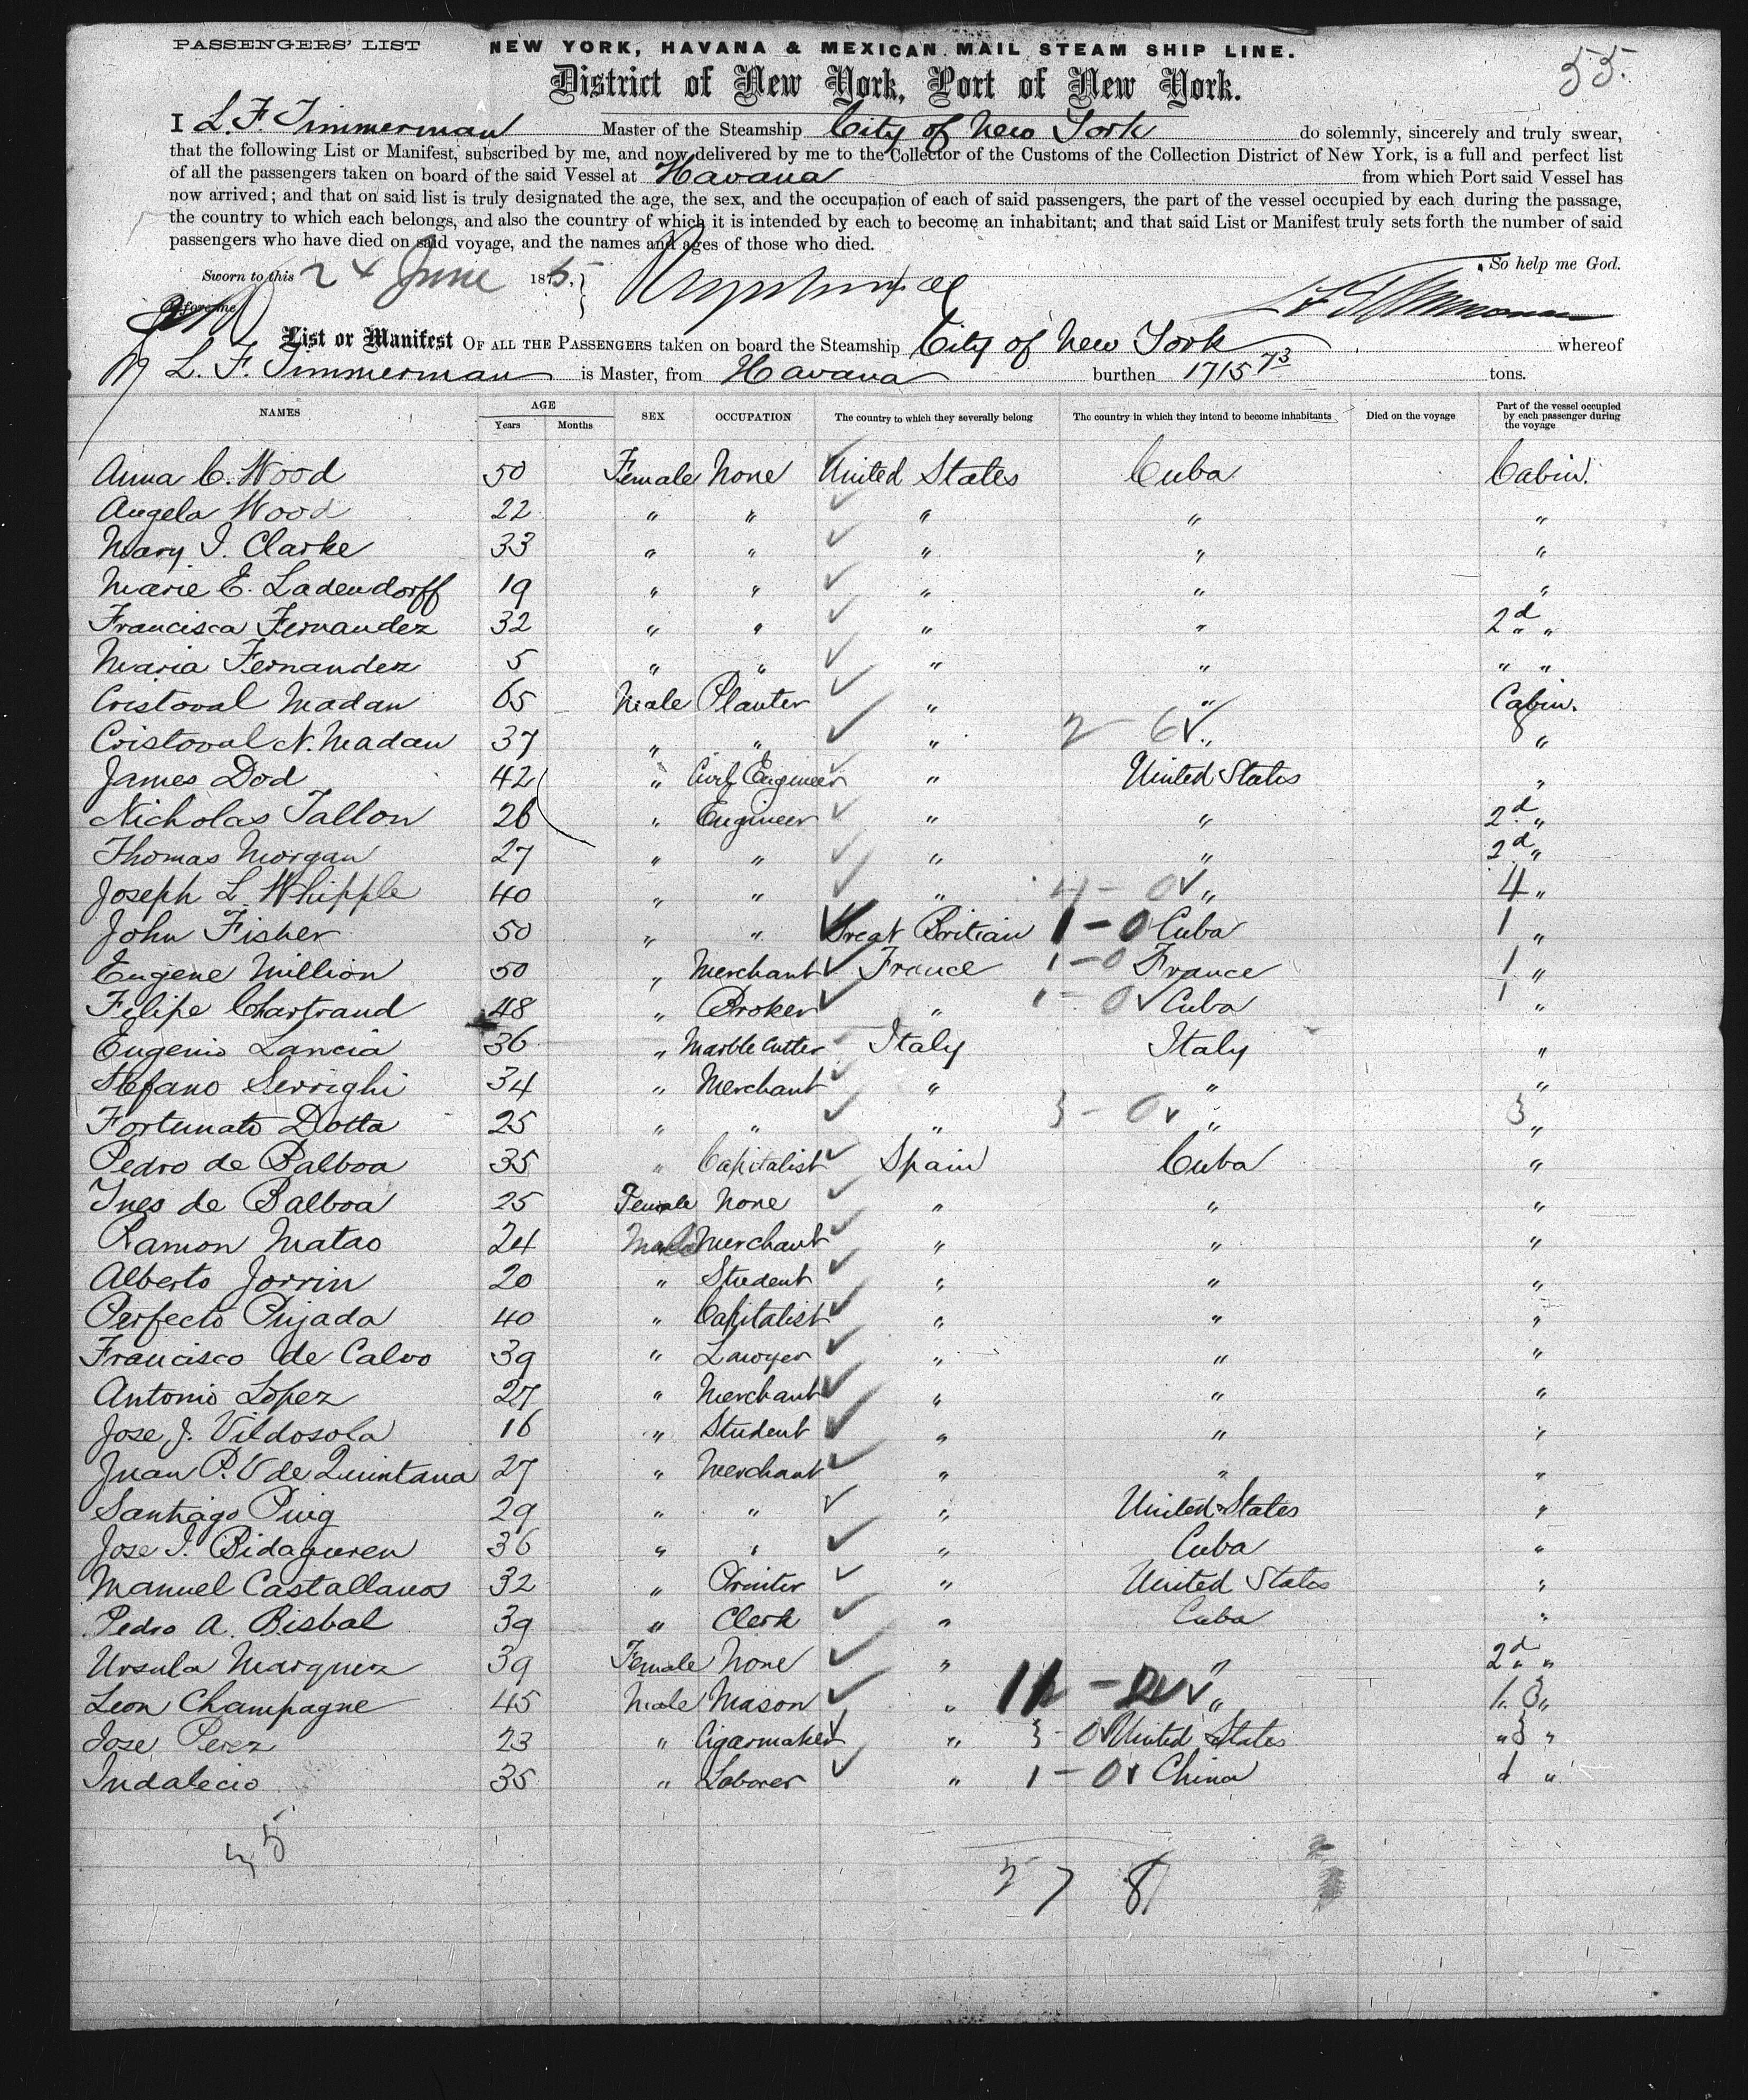 PASSENGERS' LIST NEW YORK, HAVANA & MEXICAN MAIL STEAM SHIP LINE. 55.
District of New York, Port of New York.
I L. F. Timmerman Master of the Steamship City of New York do solemnly, sincerely and truly swear,
that the following List or Manifest, subscribed by me, and now delivered by me to the Collector of the Customs of the Collection District of New York, is a full and perfect list
of all the passengers taken on board of the said Vessel at Havana from which Port said Vessel has
now arrived; and that on said list is truly designated the age, the sex, and the occupation of each of said passengers, the part of the vessel occupied by each during the passage,
the country to which each belongs, and also the country of which it is intended by each to become an inhabitant; and that said List or Manifest truly sets forth the number of said
passengers who have died on said voyage, and the names and ages of those who died.
So help me God.
Sworn to this 24 June 1875.
before me
L F Timmerman
List or Manifest OF ALL THE PASSENGERS taken on board the Steamship City of New York whereof
L. F. Timmerman is Master, from Havana burthen 1715 73 tons.
NAMES AGE Years Months SEX OCCUPATION The country to which they severally belong The country in which they intend to become inhabitants Died on the voyage Part of the vessel occupied by each passenger during the voyage
Anna C. Wood 50 Female None United States Cuba Cabin.
Angela Wood 22 " " " " "
Mary I. Clarke 33 " " " " "
Marie E. Ladendorff 19 " " " " "
Francisca Fernandez 32 " " " " 2d "
Maria Fernandez 5 " " " " " "
Cristoval Madan 65 Male Planter " " Cabin.
Cristoval N. Madan 37 " " " 2 - 6 " 8 "
James Dod 42 " Civil Engineer " United States "
Nicholas Tallon 26 " Engineer " " 2d "
Thomas Morgan 27 " " " " 2d "
Joseph L. Whipple 40 " " " 4 - 0 " 4 "
John Fisher 50 " " Great Britian 1 - 0 Cuba 1 "
Eugene Million 50 " Merchant France 1 - 0 France 1 "
Filipe Chartrand 48 " Broker " 1 - 0 Cuba 1 "
Eugenio Lancia 36 " Marble Cutter Italy Italy "
Stefano Serrighi 34 " Merchant " " "
Fortunato Dotta 25 " " " 3 - 0 " 3 "
Pedro de Balboa 35 " Capitalist Spain Cuba "
Ines de Balboa 25 Female None " " "
Ramon Matao 24 Male Merchant " " "
Alberto Jorrin 20 " Student " " "
Perfecto Pujada 40 " Capitalist " " "
Francisco de Calvo 39 " Lawyer " " "
Antonio Lopez 27 " Merchant " " "
Jose J. Vildosola 16 " Student " " "
Juan P. V de Quintana 27 " Merchant " " "
Santiago Puig 29 " " " United States "
Jose I. Bidaguren 36 " " " Cuba "
Manuel Castallanos 32 " Printer " United States "
Pedro A. Bisbal 39 " Clerk " Cuba "
Ursula Marquez 39 Female None " " 2d "
Leon Champagne 45 Male Mason " "
Jose Perez 23 " Cigarmaker " 3 - 0 United States " 3 "
Indalecio 35 " Laborer " 1 - 0 China 1 "
35
27 8